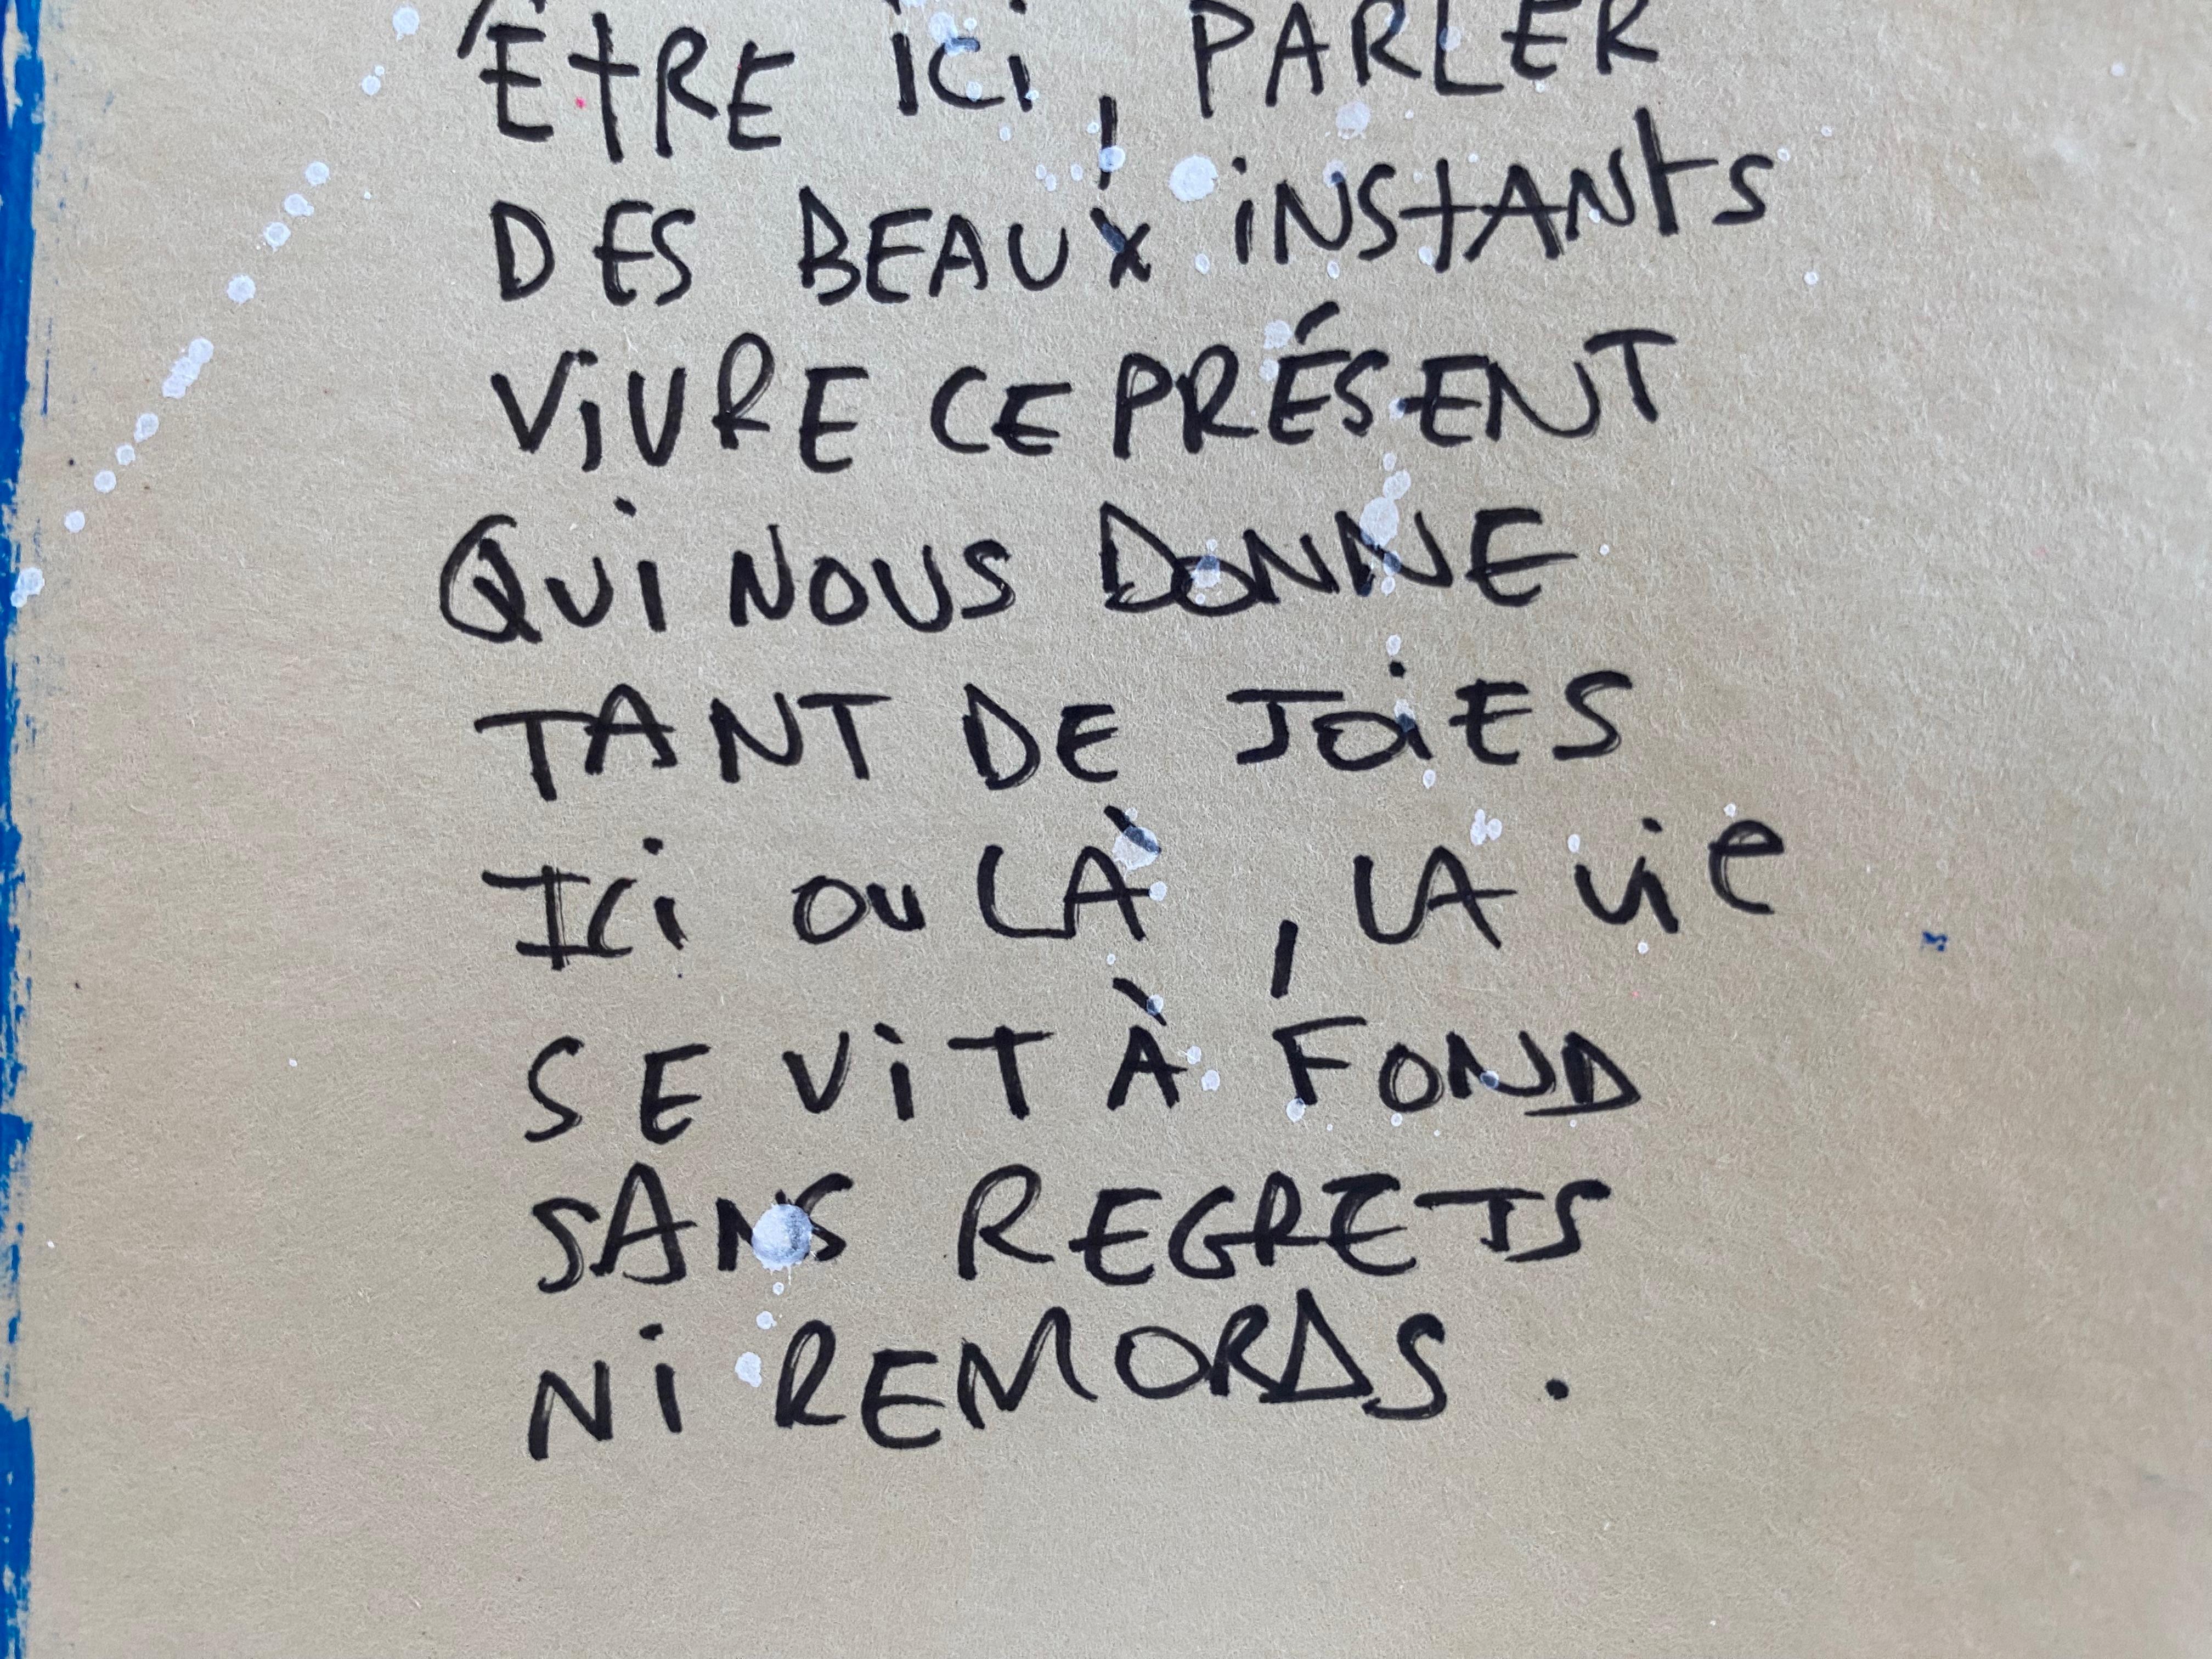 ÊTRE ICI, PARLER
DES BEAUX INSTANTS
VIVRE CE PRÉSENT
QUI NOUS DONNE
TANT DE JOIES
ICI OU LÀ, LA VIE
SE VIT À FOND
SANS REGRETS
NI REMORDS.